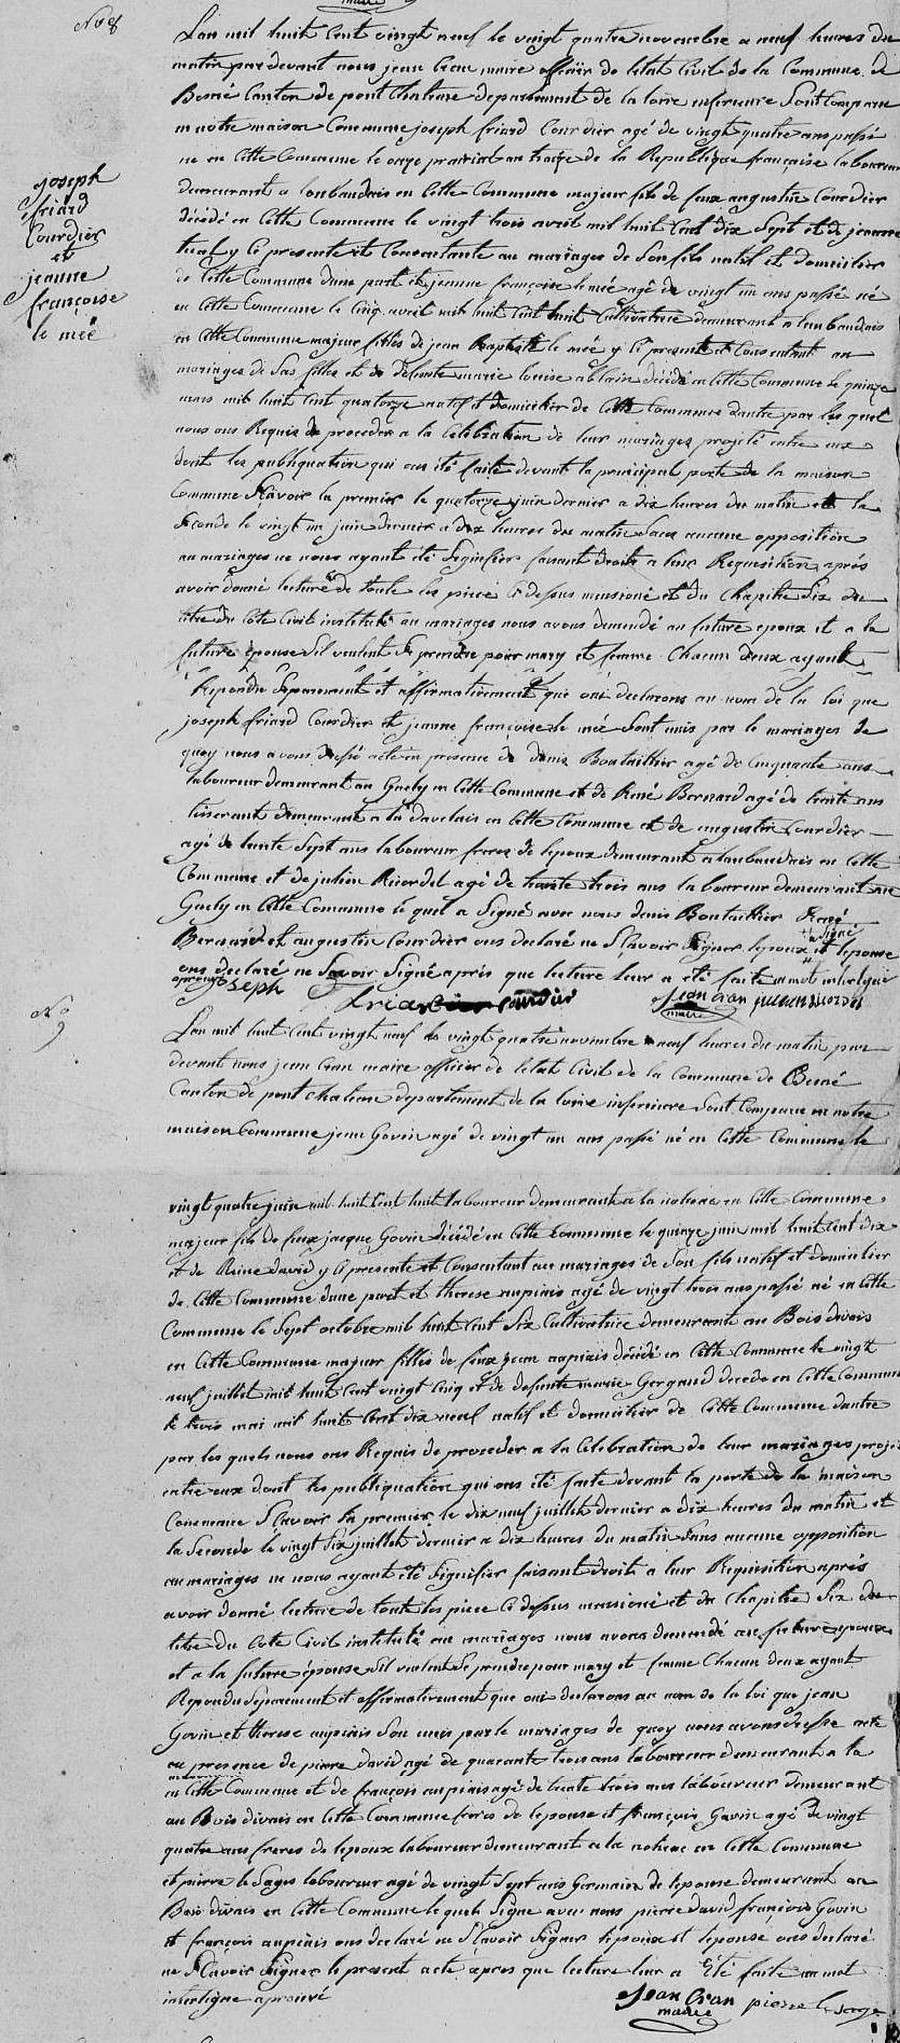 maire
No 8
Lan mil huit Cent vingt neuf le vingt quatre novembre a neuf heures du
matin par devant nous jean Cran maire officier de létat Civil de la Commune de
Besné Canton de pont Chateau departement de la loire inferieure Sont Comparu
en notre maison Commune joseph friard Courdier agé de vingt quatre ans passé
ne en Cette Commune le onze prairial an treize de la Republique française laboureur
demeurant a en Cette Commune majeur fils de feux augustin Courdier
décédé en Cette Commune le vingt trois avril mil huit Cent dix Sept et de jeanne
y Ci presente et Consentante au mariages de Son fils natif et domicilier
de Cette Commune dune part et jeanne françoise le mée agé de vingt un ans passé né
en Cette Commune le Cinq avril mil huit Cent huit Cultivatrice demeurant a laubaudais
en Cette Commune majeur filles de jean Baptiste le mée y Ci present et Consentant au
mariages de Sas filles et de défunte marie louise décédé en Cette Commune le quinze
mars mil huit Cent quatorze natif et domicilier de Cette Commune dautre par les quel
nous ons Requis de proceder a la Celebration de leur mariages projeté entre eux
dont les publiquation qui ons été faite devant la principal porte de la maison
Commune Sçavoir la premier le quatorze juin dernier a dix heures du matin et la
Seconde le vingt un juin dernier a dix heures du matin Sans aucune opposition
au mariages ne nous ayant été Signifier faisant droite a leur Requisition après
avoir donné lecture de toute les piece Ci dessus mensioné et du Chapitre Six du
titre du Cote Civil institulé au mariages nous avons demendé au future epoux et a la
future épouse Sil veulent Se prendre pour mary et femme Chacun deux ayant
Repondu Séparement et affirmativement que oui declarons au nom de la loi que
joseph friard Courdier et jeanne françoise le mée Sont unis par le mariages de
quoy nous avons dressé acte en presence de denis Boutaillier agé de Cinquante ans
laboureur demeurant au Guely en Cette Commune et de René Bernard agé de trente ans
tisserant demeurant a la davelais en Cette Commune et de augustin Courdier
agé de trente Sept ans laboureur freres de lepoux demeurant a laubaudais en Cette
Commune et de julien Ricordel agé de trente trois ans laboureur demeurant au
Guely en Cette Commune le quel a Signé avec nous denis Boutaillier René
Bernard et augustin Courdier ons declaré ne Sçavoir Signer lepoux a Signé et lepouse
ons declaré ne Savoir Signé après que lecture leur a été faite mot interligné
aprouvé
joseph friard Courdier
Jean Cran
maire
julien Ricordel
joseph
friard
Courdier
et
jeanne
françoise
le mée
No 9
Lan mil huit Cent vingt neuf le vingt quatre novembre a neuf heures du matin par
devant nous jean Cran maire officier de létat Civil de la Commune de Besné
Canton de pont chateau departement de la loire inferieure Sont Comparu en notre
maison Commune jean Govin agé de vingt un ans passé né en Cette Commune le
vingt quatre juin mil huit Cent huit laboureur demeurant a la notiere en Cette Commune
majeur fils de feux jacque Govin décédé en Cette Commune le quinze juin mil huit Cent dix
et de Reine david y Ci presente et Consentant au mariages de Son fils natif et domicilier
de Cette Commune dune part et therese aupiais agé de vingt trois ans passé né en Cette
Commune le Sept octobre mil huit Cent Six Cultivatrice demeurante au Bois divais
en Cette Commune majeur filles de feux jean aupiais décédé en Cette Commune le vingt
neuf juillet mil huit Cent vingt Cinq et de defunte marie Gergaud decede en Cette Commune
le trois mai mil huit Cent dix neuf natif et domicilier de Cette Commune dautre
par les quels nous ons Requis de proceder a la Celebration de leur mariages projeté
entre eux dont les publiquation qui ons été faite devant la porte de la maison
Commune Sçavoir la premier le dix neuf juillet dernier a dix heures du matin et
la Seconde le vingt Six juillet dernier a dix heures du matin Sans aucune opposition
au mariages ne nous ayant été Signifier faisant droite a leur Requisition après
avoir donné lecture de tout les piece Ci dessus mensioné et du Chapitre Six du
titre du Cote Civil institulé au mariages nous avons demendé au future epoux
et a la future épouse Sil veulent Se prendre pour mary et femme Chacun deux ayant
Repondu Séparement et affirmativement que oui declarons au nom de la loi que jean
Govin et therese aupiais Son unis par le mariages de quoy nous avons dressé acte
en presence de pierre david agé de quarante trois ans laboureur demeurant a la
en Cette Commune et de françois aupiais agé de trente trois ans laboureur demeurant
au Bois divais en Cette Commune freres de lepouse et françois Govin agé de vingt
quatre ans freres de lepoux laboureur demeurant a la notiere en Cette Commune
et pierre le Sage laboureur agé de vingt Sept ans Germain de lepouse demeurant au
Bois divais en Cette Commune le quel Signe avec nous pierre david françois Govin
et françois aupiais ons declaré ne Sçavoir Signer lepoux et lepouse ons declaré
ne Sçavoir Signer le present acte apres que lecture leur a été faite un mot
interligne aprouvé
Jean Cran
maire
pierre le sage